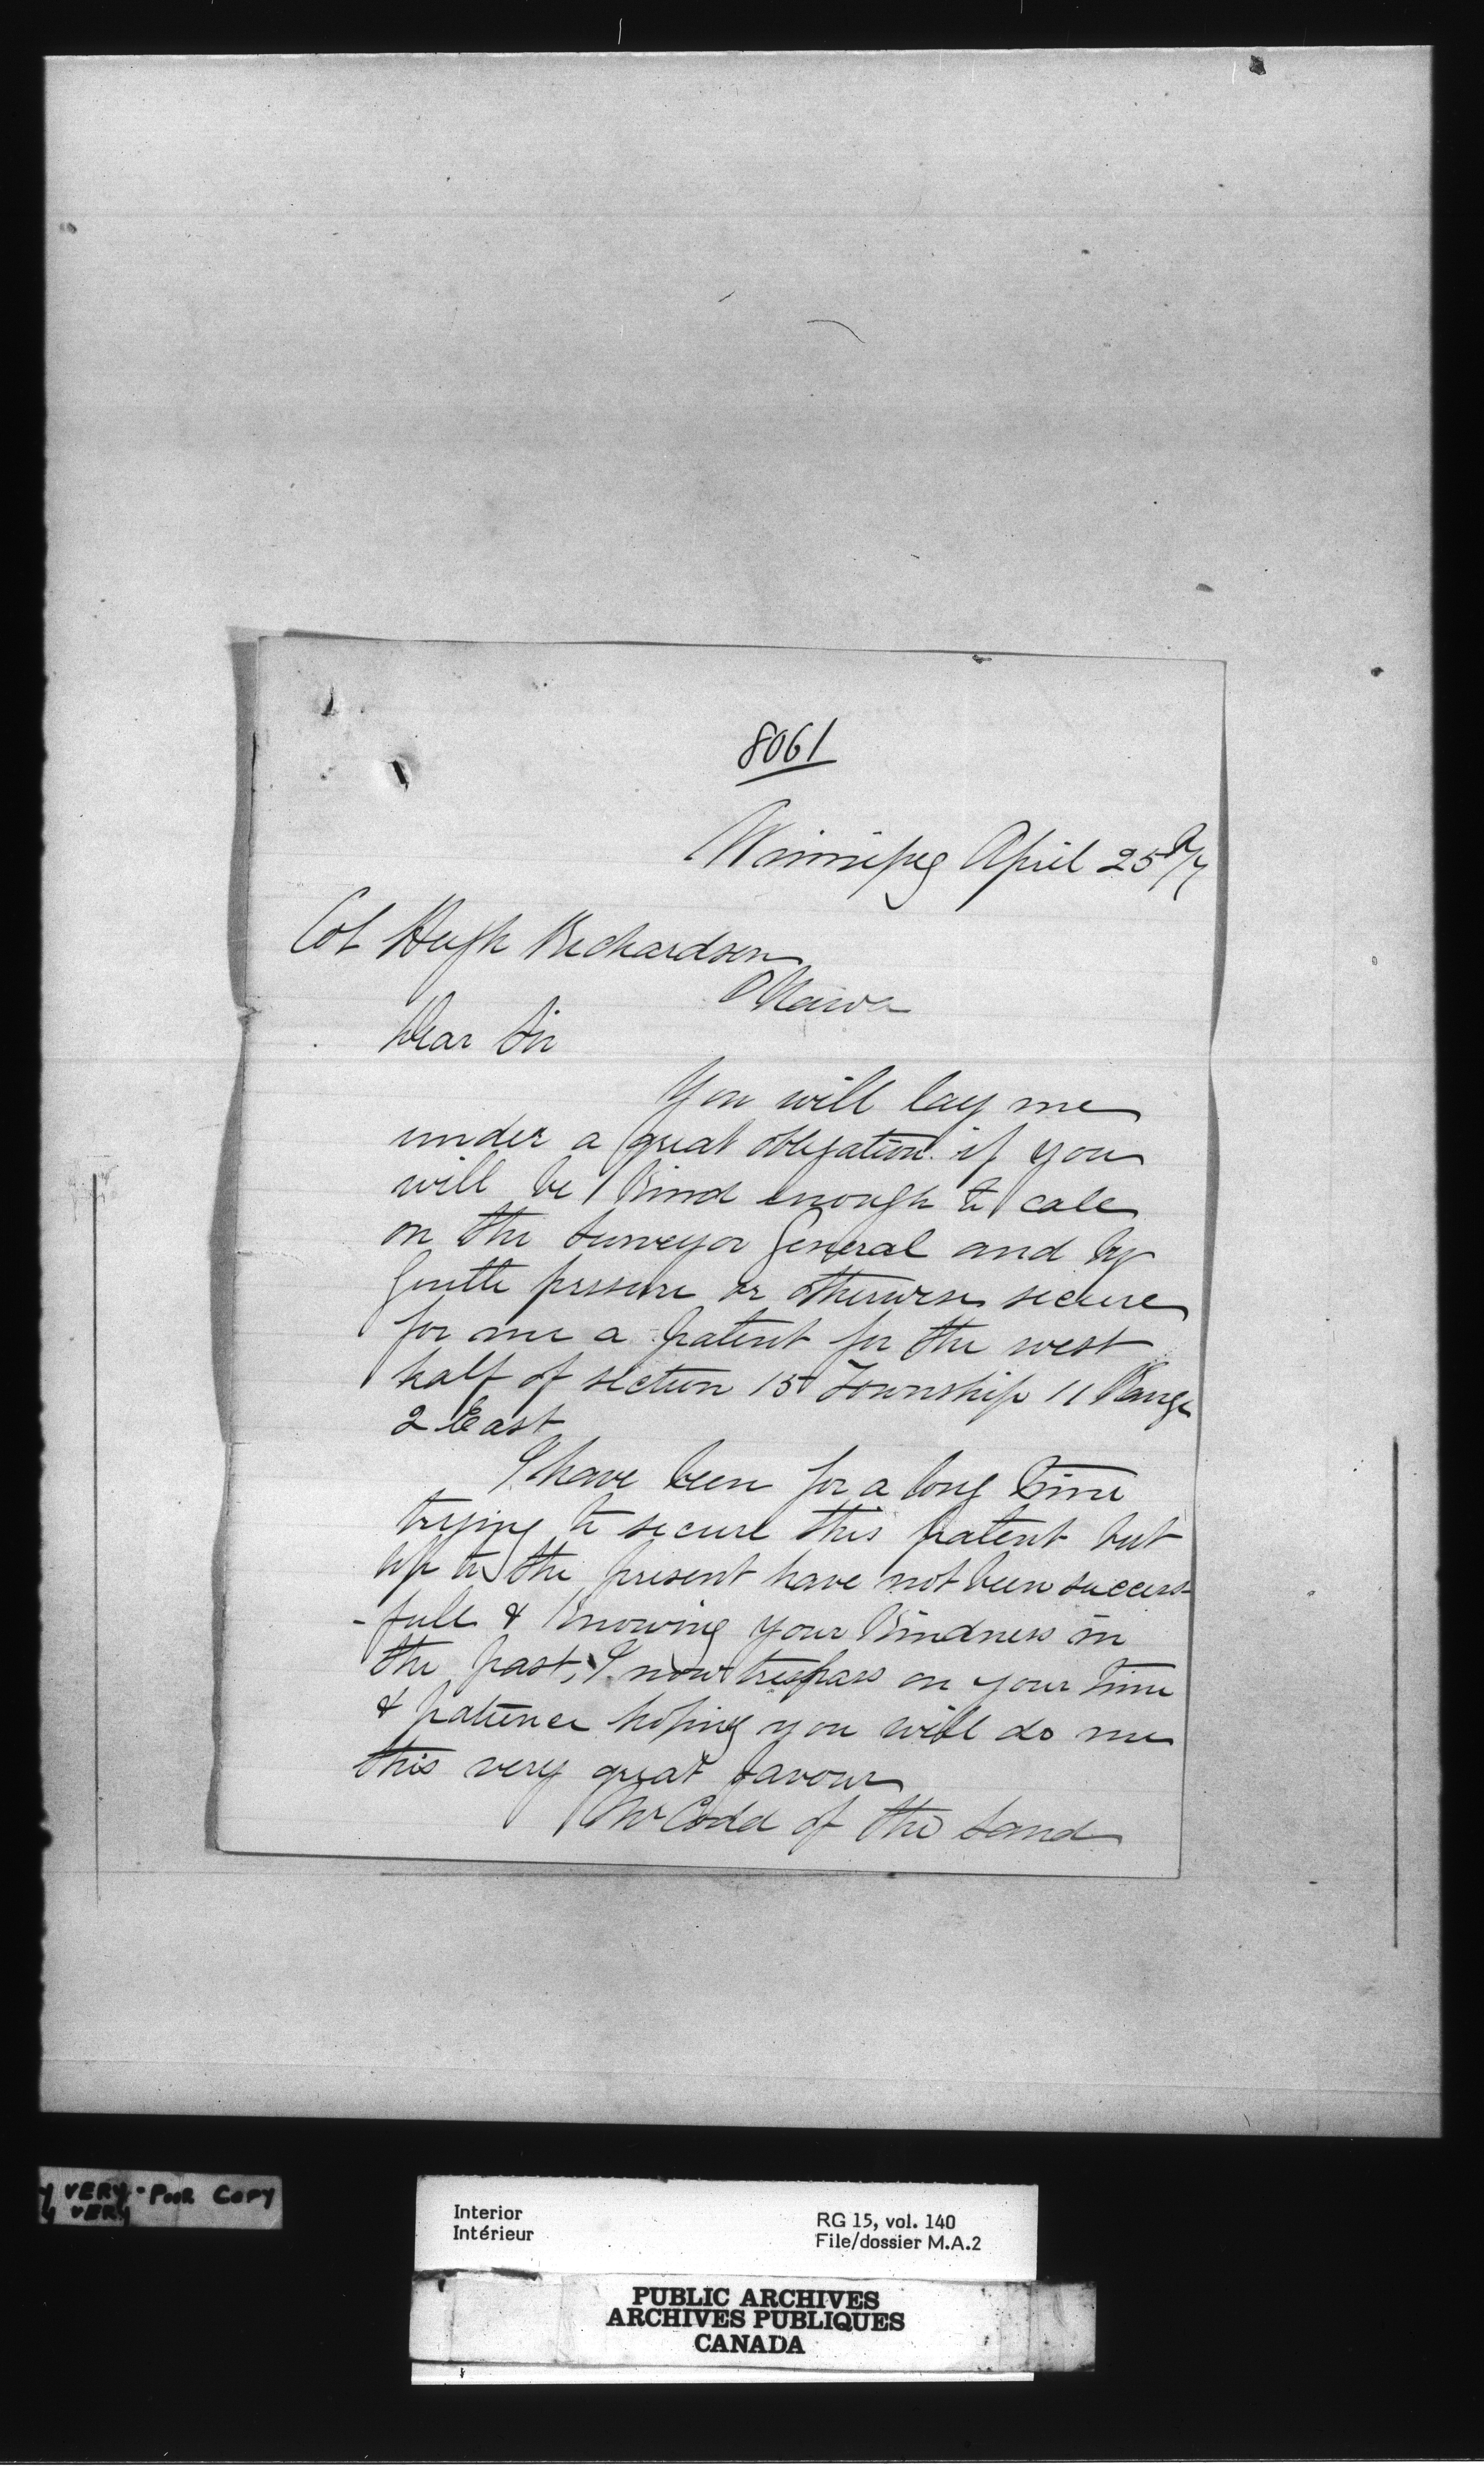 8061
Winnipeg April 25
Col Hugh Richardson
Ottawa
Dear Sir
You will lay me
under a great obligation if you
will be kind enough to call
on the Surveyor General and by
gentle pressure or otherwise secure
for me a patent for the west
half of section 15 Township 11 Range
2 East
I have been for a long time
trying to secure this patent but
up to the present have not been success-
-full & knowing your kindness in
the past, I now trespass on your time
& patience hoping you will do me
this very great favour
Mr Codd of the Land
VERY POOR COPY
VERY
Interior
Intérieur
RG 15, vol. 140
File/dossier M.A.2
PUBLIC ARCHIVES
ARCHIVES PUBLIQUES
CANADA